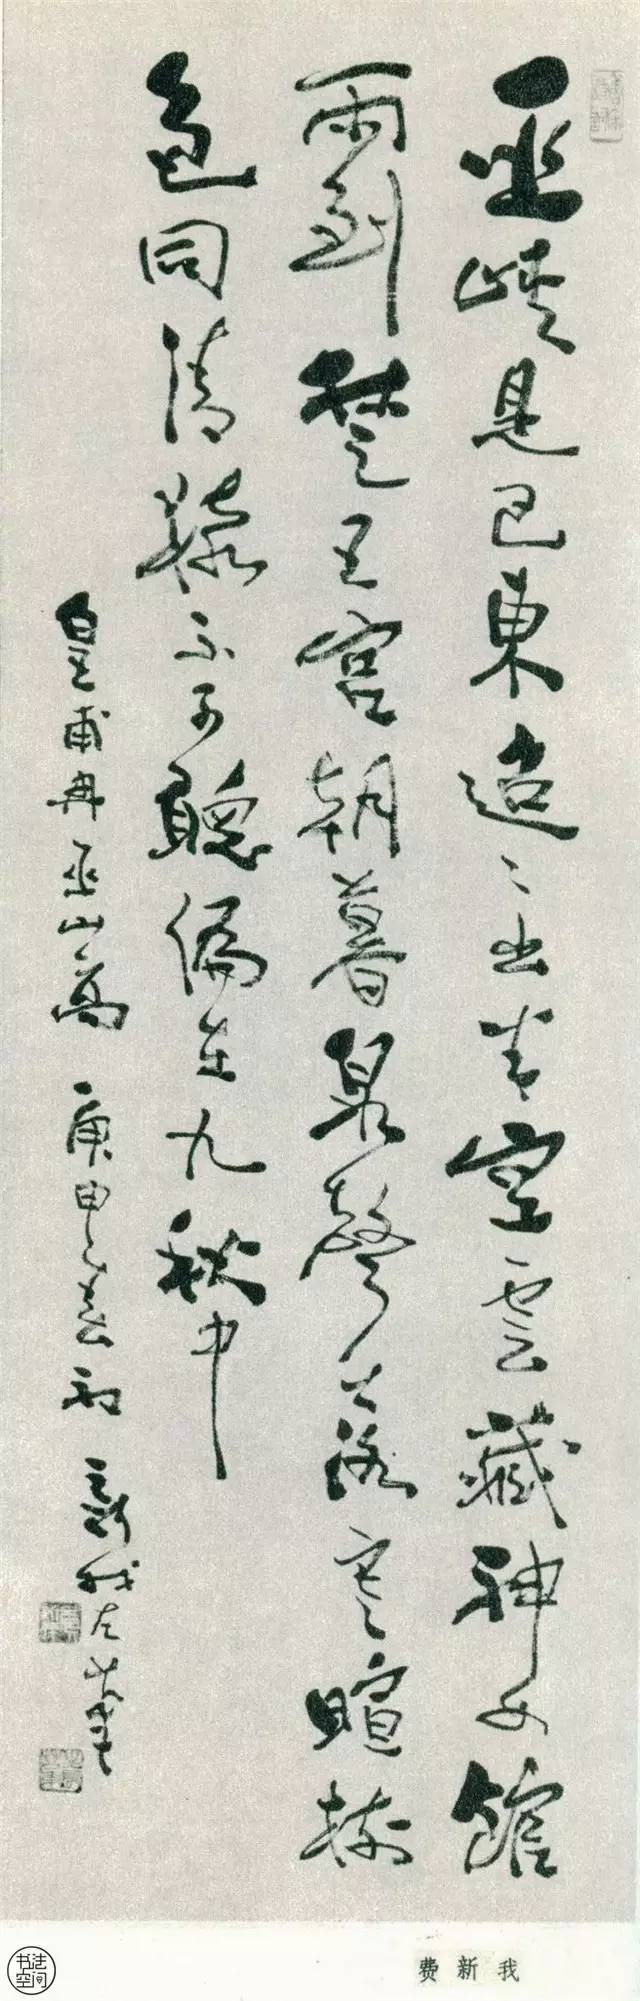 巫峽見巴東迢〻出半空雲藏神女館
雨到楚王宮朝暮泉聲落寒暄樹
色同清猿不可聽偏在九秋中
皇甫冉巫山高 庚申春初 新我左筆
费新我
书法
空间